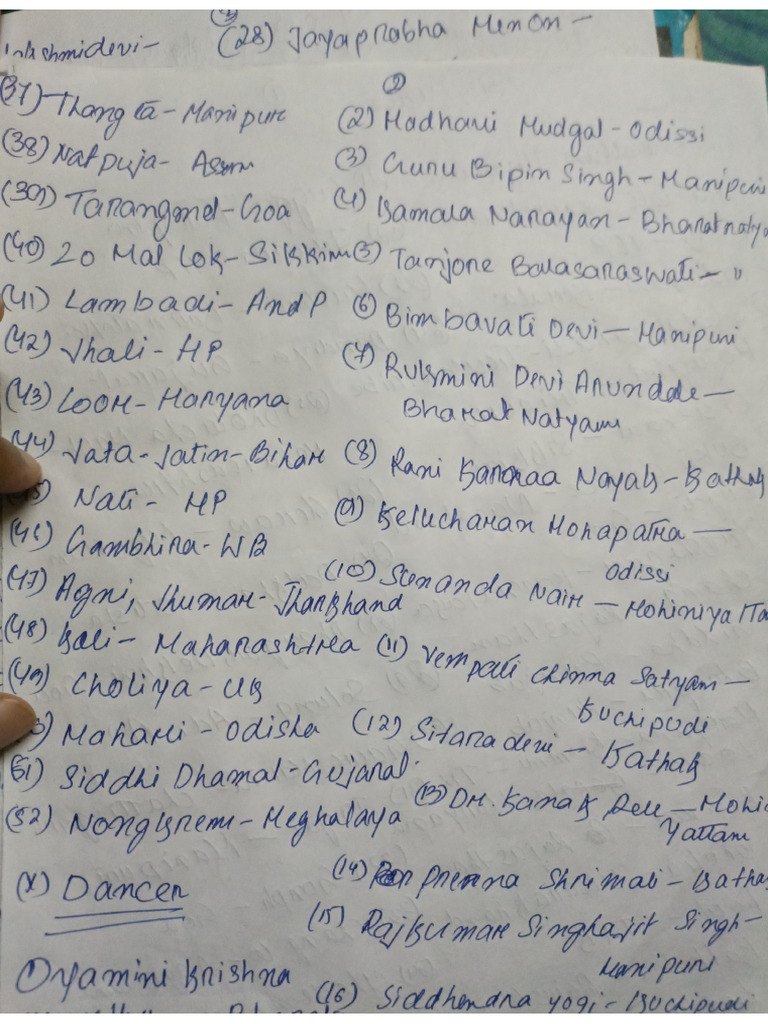 (28) Jayaprabha Menon -
(37) Thang ta - Manipur
(38) Natpuja - Assm
(39) Tarangmel - Goa
(40) Zo Mal Lok - Sikkim
(41) Lambadi - And P
(42) Jhali - HP
(43) Loor - Haryana
(44) Jata - Jatin - Bihar
Nati - HP
(46) Gambhira - WB
(47) Agni, Jhumar - Jharkhand
(48) Koli - Maharashtra
(49) Choliya - UK
Mahari - Odisha
(51) Siddhi Dhamal - Gujarat
(52) Nongkrem - Meghalaya
(X) Dancer
① yamini Krishna
②
(2) Madhavi Mudgal - Odissi
(3) Guru Bipin Singh - Manipuri
(4) Kamala Narayan - Bharatnatya
(5) Tanjore Balasaraswati - "
(6) Bimbavati Devi - Manipuri
(7) Rukmini Devi Arundale -
Bharat Natyam
(8) Rani Karnaa Nayak - Kathak
(9) Kelucharan Mohapatra -
Odissi
(10) Sunanda Nair - Mohiniya
(11) Vempati Chinna Satyam -
Kuchipudi
(12) Sitara devi - Kathak
(13) DR. Kanak Rele - Mohi
Yattam
(14) Prerna Shrimali - Katha
(15) Rajkumar Singhajit Singh -
Manipuri
(16) Siddhendra yogi - Kuchipudi